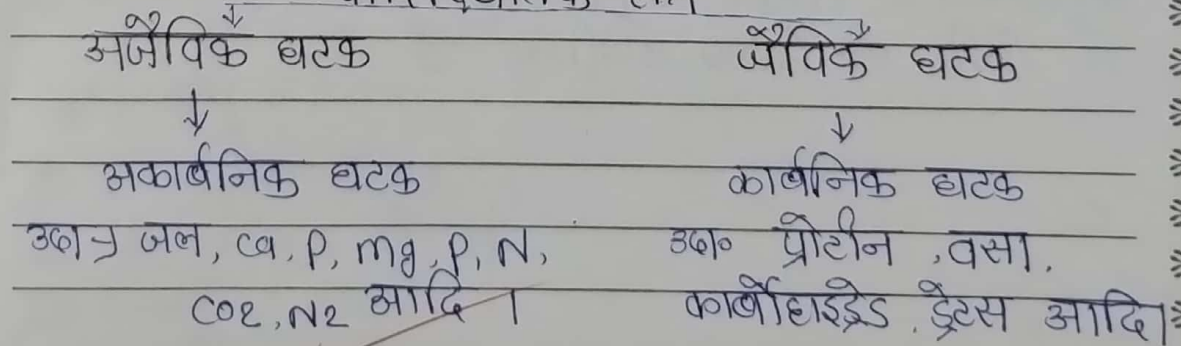 अजैविक घटक जैविक घटक
↓ ↓
अकार्बनिक घटक कार्बनिक घटक
उदा→ जल, ca, P, mg, P, N, उदा० प्रोटीन, वसा,
CO2, N2 आदि । कार्बोहाइड्रेड, ड्रेटस आदि।